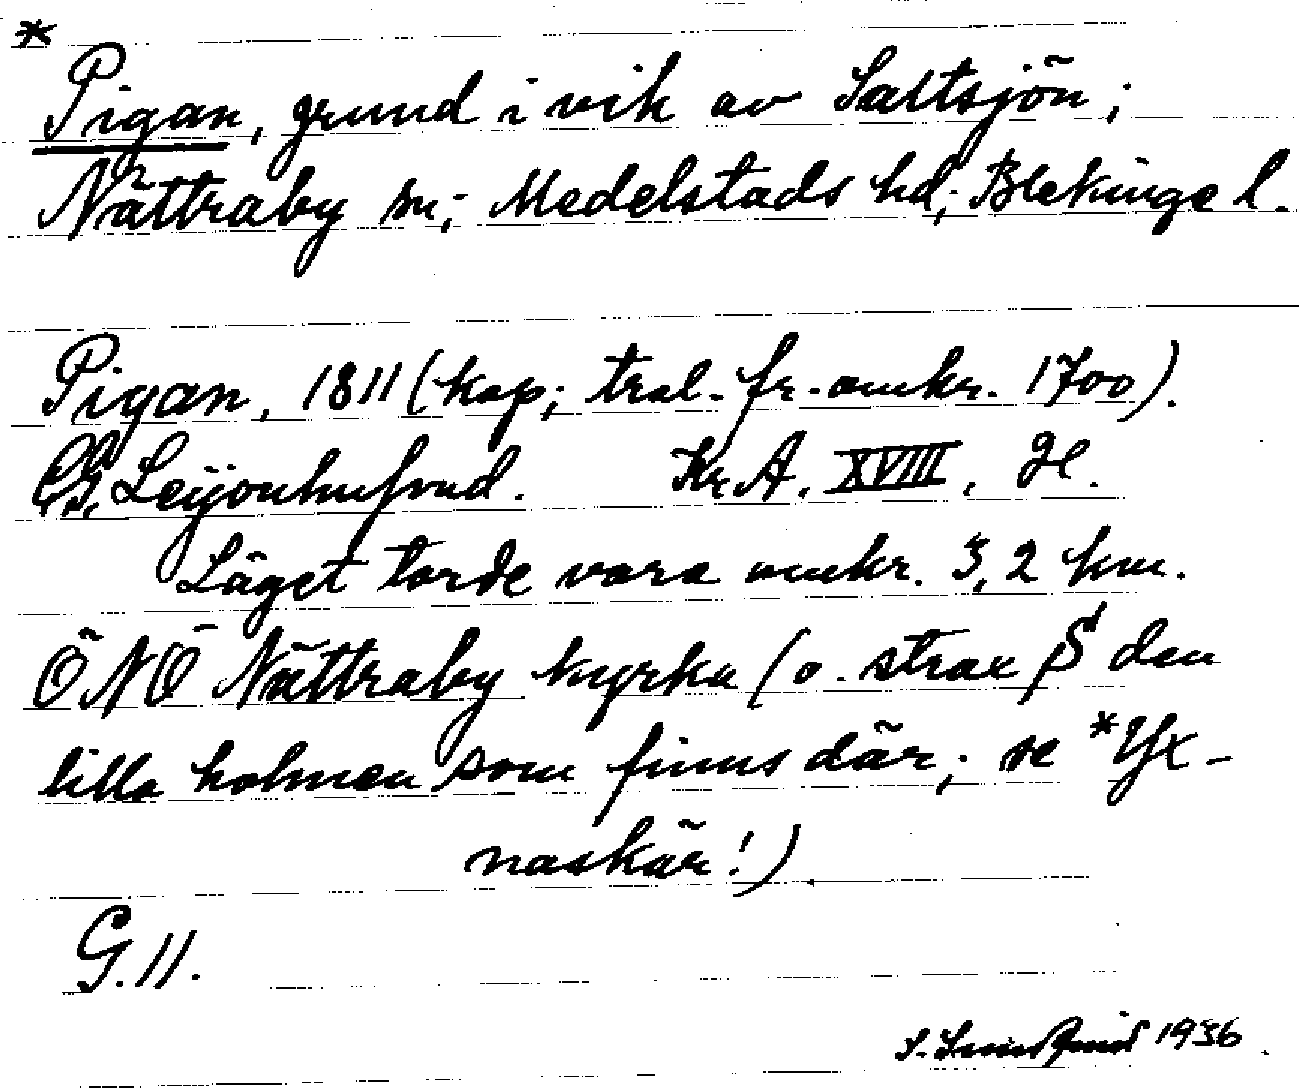 *
Pigan, grund i vik av Saltsjön;
Nättraby sn; Medelstads hd; Blekinge l.
Pigan, 1811 (kop; tral. fr. omkr. 1700).
CG. Leijonhufvud. Kr.A. XVIII, H.
Läget torde vara omkr. 3,2 km.
ÖNÖ Nättraby kyrka (o. strax S den
lilla holmen som finns där; se *Yx-
naskär!)
G. 11.
S. 1936